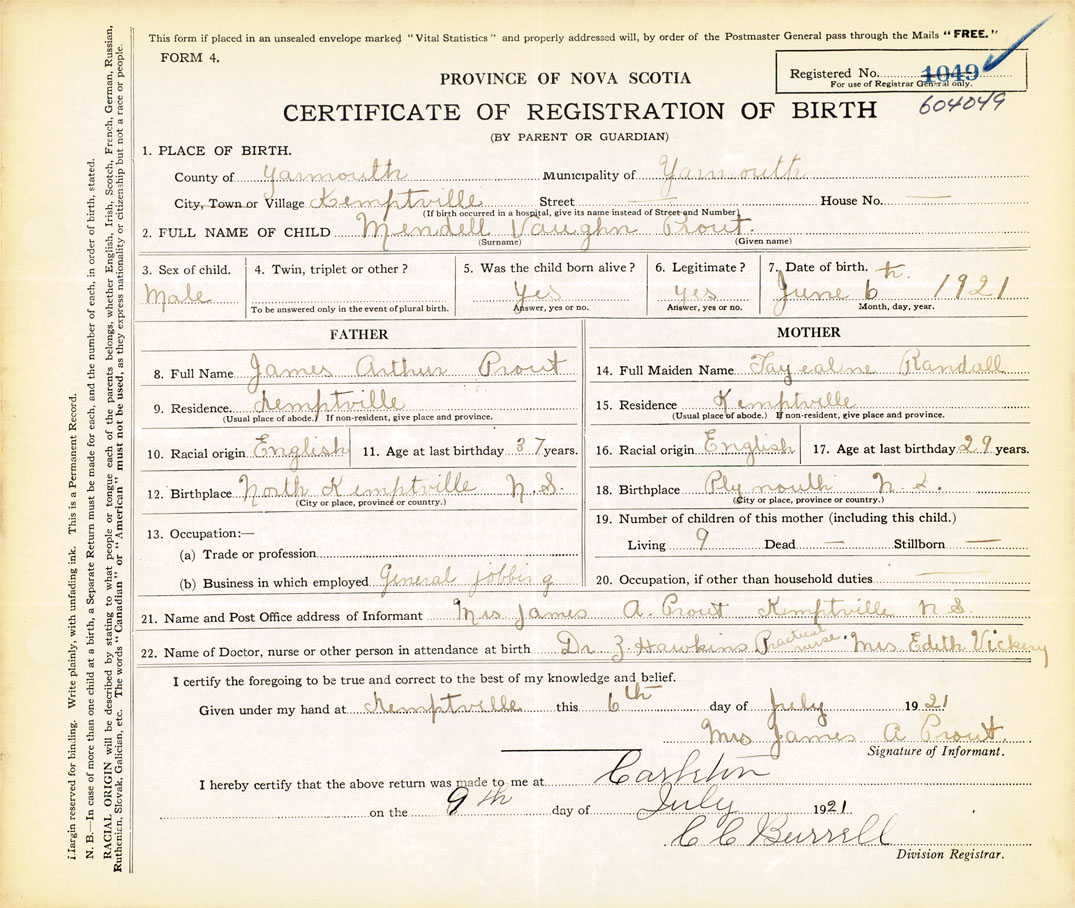 This form if placed in an unsealed envelope marked "Vital Statistics" and properly addressed will, by order of the Postmaster General pass through the Mails "FREE."
FORM 4.
Registered No. 1049
For use of Registrar General only.
604049
PROVINCE OF NOVA SCOTIA
CERTIFICATE OF REGISTRATION OF BIRTH
(BY PARENT OR GUARDIAN)
1. PLACE OF BIRTH.
County of Yarmouth Municipality of Yarmouth
City, Town or Village Kemptville Street — House No. —
(If birth occurred in a hospital, give its name instead of Street and Number)
2. FULL NAME OF CHILD Mendell Vaughn Prout.
(Surname) (Given name)
3. Sex of child. 4. Twin, triplet or other? 5. Was the child born alive? 6. Legitimate? 7. Date of birth.
Male yes yes June 6th. 1921
To be answered only in the event of plural birth. Answer, yes or no. Answer, yes or no. Month, day, year.
FATHER
8. Full Name James Arthur Prout
9. Residence. Kemptville
(Usual place of abode.) If non-resident, give place and province.
10. Racial origin English 11. Age at last birthday 37 years.
12. Birthplace North Kemptville N.S.
(City or place, province or country.)
13. Occupation:—
(a) Trade or profession
(b) Business in which employed General jobbing
MOTHER
14. Full Maiden Name Randall
15. Residence Kemptville
(Usual place of abode.) If non-resident, give place and province.
16. Racial origin English 17. Age at last birthday 29 years.
18. Birthplace Plymouth N.S.
(City or place, province or country.)
19. Number of children of this mother (including this child.)
Living 9 Dead — Stillborn —
20. Occupation, if other than household duties —
21. Name and Post Office address of Informant Mrs James A. Prout Kemptville N.S.
22. Name of Doctor, nurse or other person in attendance at birth Dr Z. Hawkins Practical nurse. Mrs Edith Vickery
I certify the foregoing to be true and correct to the best of my knowledge and belief.
Given under my hand at Kemptville this 6th day of July 1921
Mrs James A Prout.
Signature of Informant.
I hereby certify that the above return was made to me at Carleton
on the 9th day of July 1921
C C Burrell
Division Registrar.
Margin reserved for binding. Write plainly, with unfading ink. This is a Permanent Record.
N. B.—In case of more than one child at a birth, a Separate Return must be made for each, and the number of each, in order of birth, stated.
RACIAL ORIGIN will be described by stating to what people or tongue each of the parents belongs, whether English, Irish, Scotch, French, German, Russian,
Ruthenian, Slovak, Galician, etc. The words "Canadian" or "American" must not be used, as they express nationality or citizenship but not a race or people.